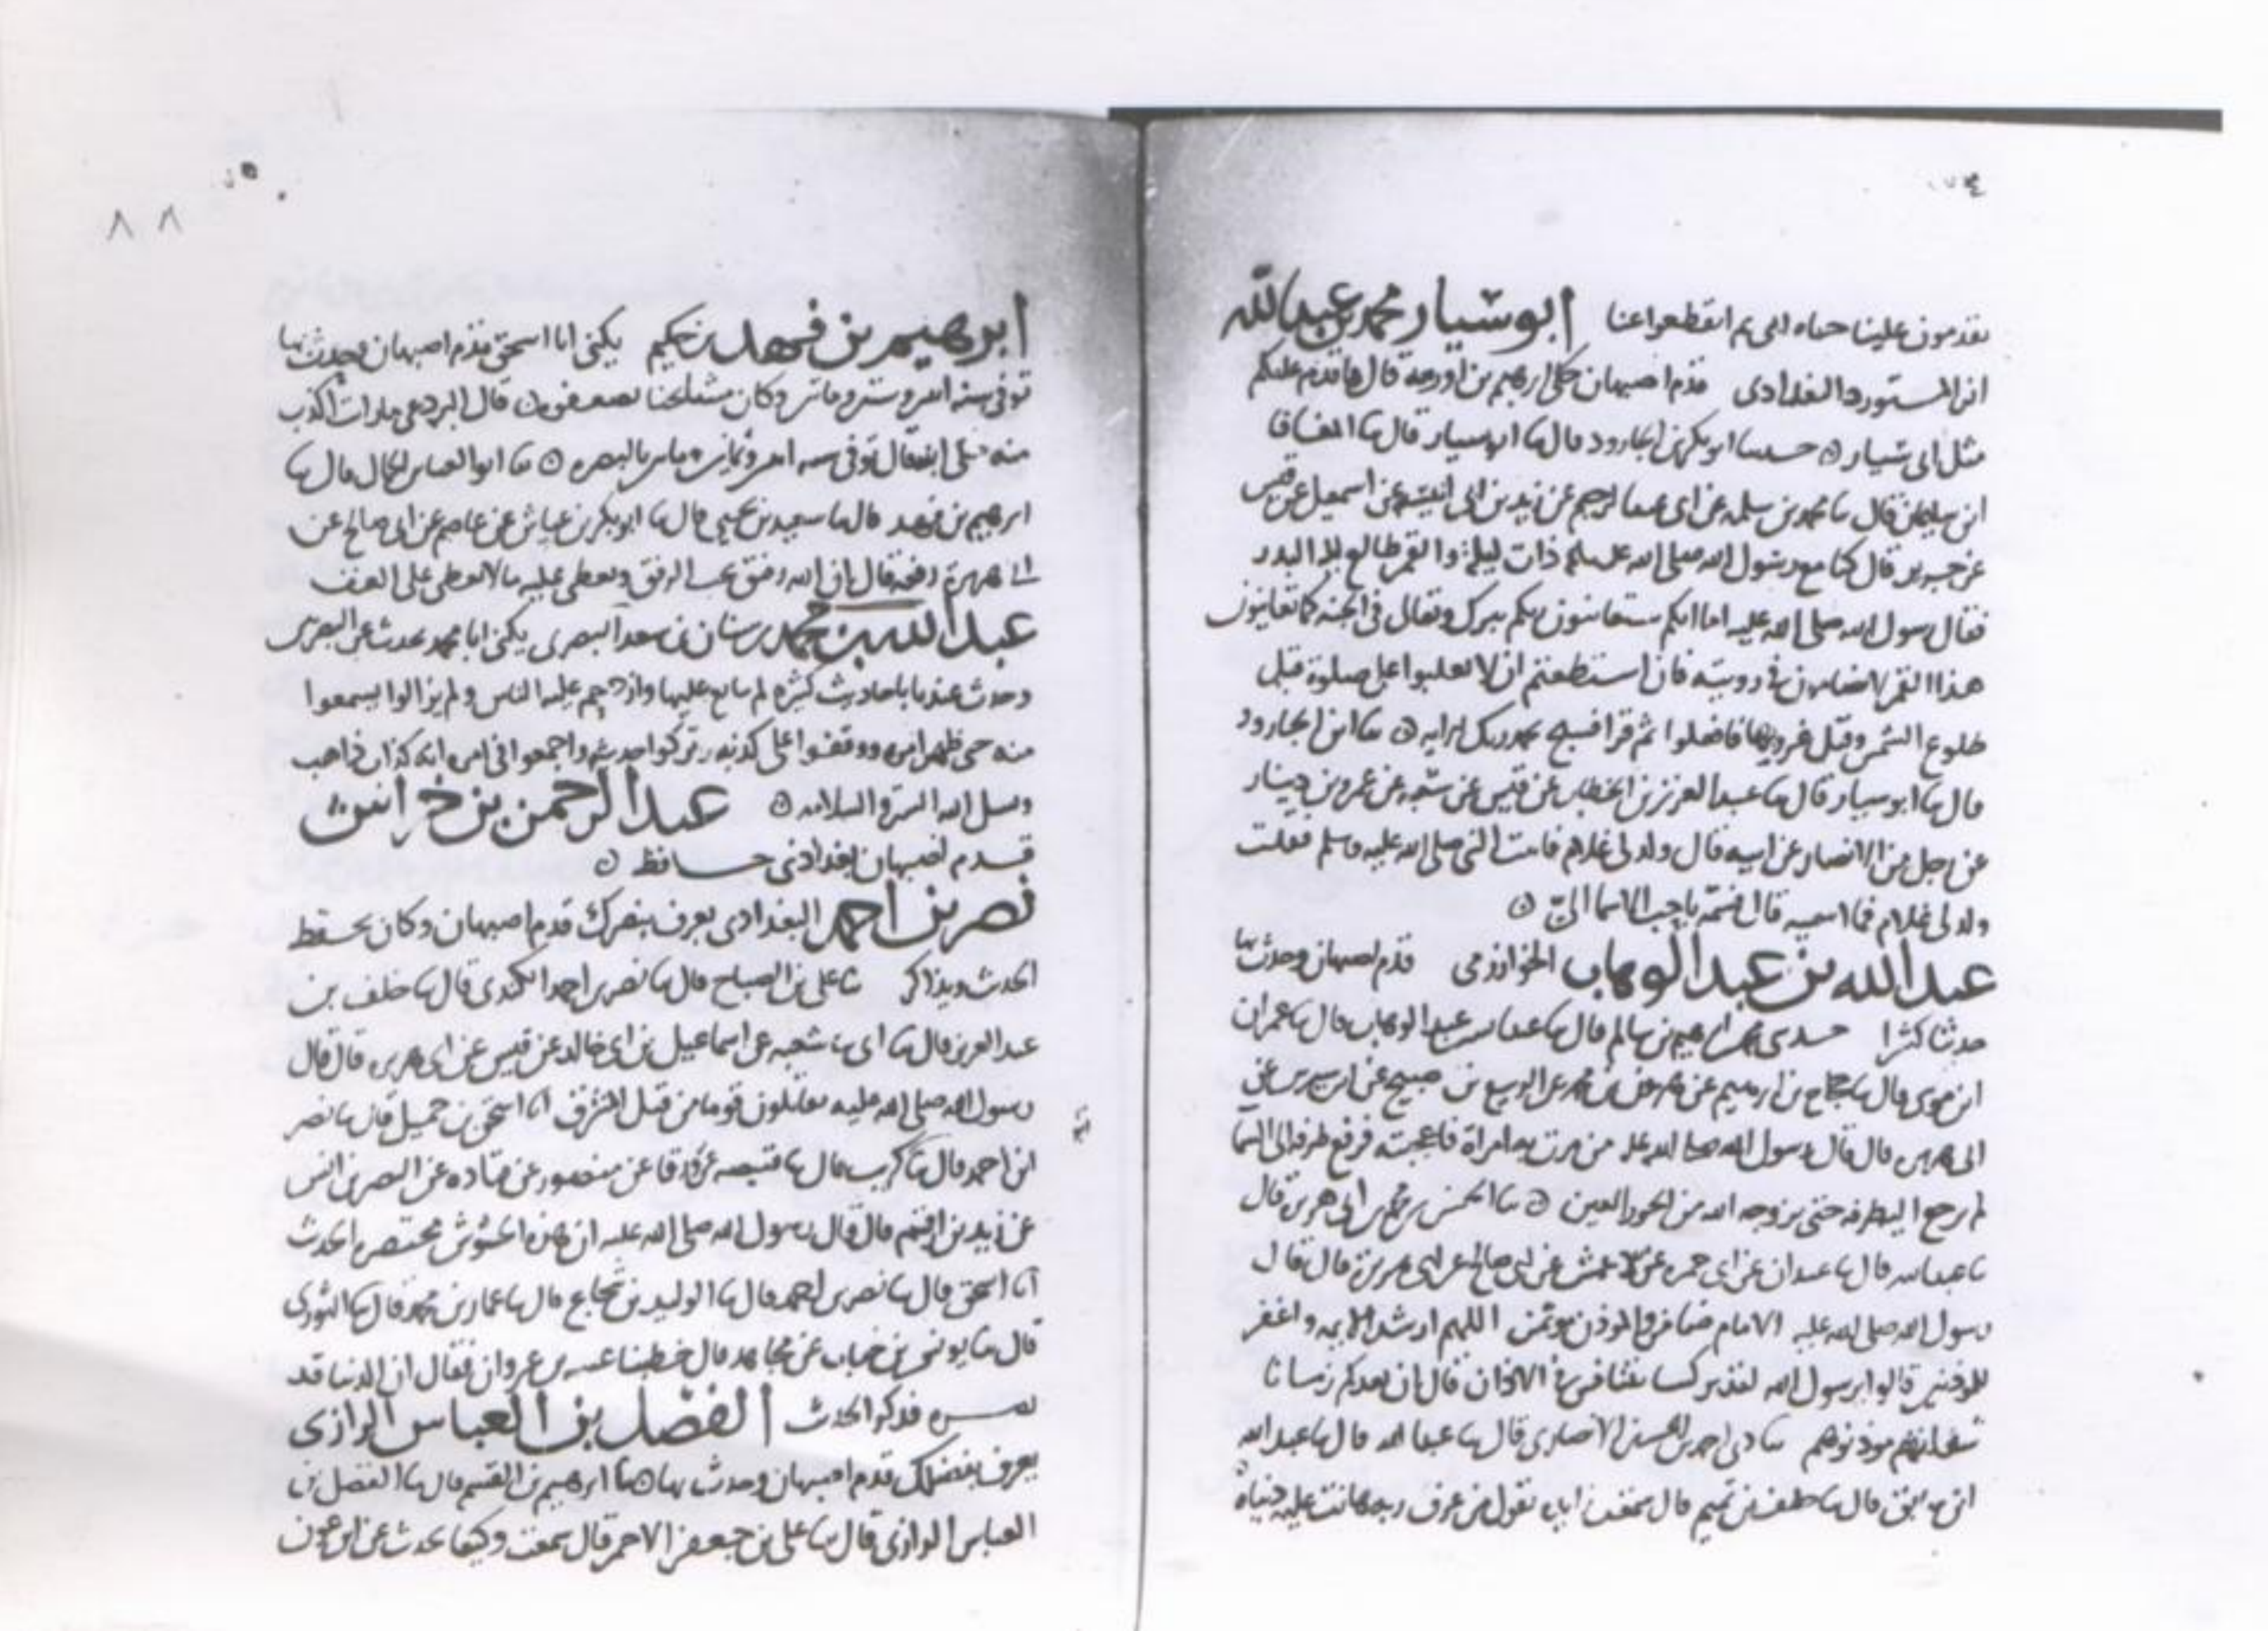 يقدمون علينا حماه الى ثم انقطعوا عنا ابو سيار محمد بن عبد الله
ابن المستورد البغدادى قدم اصبهان حكى ابرهيم بن اورمة قال ما قدم عليكم
مثل ابى سيار حدثنا ابو بكر بن الجارود قال ثنا ابو سيار قال ثنا
ابن سليمان قال ثنا محمد بن سلمه عن ابى عبد الرحيم عن زيد بن ابى انيسة عن اسمعيل عن قيس
عن جرير قال كنا مع رسول الله صلى الله عليه وسلم ذات ليلة والقمر طالع ليلة البدر
فقال رسول الله صلى الله عليه اما انكم ستعاينون ربكم تبرك وتعالى فى الجنه كما تعاينون
هذا القمر لا تضامون فى رويته فان استطعتم ان لا تغلبوا على صلوة قبل
طلوع الشمس وقبل غروبها فافعلوا ثم قرا فسبح بحمد ربك الايه ثنا ابن الجارود
قال ثنا ابو سيار قال ثنا عبد العزيز بن الخطاب عن قيس عن شعبه عن عمرو بن دينار
عن رجل من الانصار عن ابيه قال ولد لى غلام فاتيت النبى صلى الله عليه وسلم فقلت
ولد لى غلام فما اسميه قال سمه باحب الاسما الىّ
عبد الله بن عبد الوهاب الخوارزمى قدم اصبهان وحدث بها
حديثا كثيرا حدثنى محمد بن ابرهيم بن سالم قال ثنا عبد الله بن عبد الوهاب قال ثنا عمران
ابن موسى قال ثنا حجاج بن ابرهيم عن عن الربيع بن صبيح عن ابن سيرين عن
ابى هريرة قال قال رسول الله صلى الله عليه من مرت به امراة فاعجبته فرفع طرفه الى السما
لم يرجع اليه طرفه حتى يزوجه الله من الحور العين ثنا الحسن بن محمد بن ابى هريرة قال
ثنا عبد الله قال ثنا عبدان عن ابى حمزه عن الاعمش عن ابى صالح عن ابى هريرة قال قال
رسول الله صلى الله عليه الامام ضامن والموذن موتمن اللهم ارشد الايمه واغفر
للموذنين قالوا يرسول الله لقد تركتنا نتنافس فى الاذان قال ان بعدكم زمانا
سفلتهم موذنوهم ثنا احمد بن الحسن الانصارى قال ثنا عبد الله قال ثنا عبد الله
ابن خبيق قال ثنا خلف بن تميم قال سمعت يقول من عرف ربه هانت عليه دنياه
٨٨
ابرهيم بن فهد بن حكيم يكنى ابا اسحق قدم اصبهان وحدث بها
توفى سنه اثنين وستين وماتين وكان مشايخنا يضعفونه قال البردعى ما رايت اكذب
منه توفى سنه اثنين وثمانين وماتين بالبصره ثنا ابو العباس الجمال قال ثنا
ابرهيم بن فهد قال ثنا سعيد بن يحيى قال ثنا ابو بكر بن عياش عن عاصم عن ابى صالح عن
ابى هريرة رفعه قال ان الله رفيق يحب الرفق ويعطى عليه ما لا يعطى على العنف
عبد الله بن محمد بن سنان بن سعد البصرى يكنى ابا محمد يحدث عن البصريين
وحدث عندنا باحاديث كثيره لم يتابع عليها وازدحم عليه الناس ولم يزالوا يسمعوا
منه حتى ظهر امره ووقفوا على كذبه وتركوا حديثه واجمعوا فى امره انه كذاب ذاهب
ونسل الله الستر والسلامه عبد الرحمن بن خراش
قدم اصبهان بغدادى حافظ
نصر بن احمد البغدادى يعرف بنصرك قدم اصبهان وكان يحفظ
الحديث ويذاكر ثنا على بن الصباح قال ثنا نصر بن احمد الكندى قال ثنا خلف بن
عبد العزيز قال ثنا ابى ثنا شعبه عن اسماعيل بن ابى خالد عن قيس عن ابى هريره قال قال
رسول الله صلى الله عليه تقاتلون قوما من قبل المشرق انا اسحق بن جميل قال ثنا نصر
ابن احمد قال ثنا كريب قال ثنا قتيبه عن ورقا عن منصور عن قتاده عن النضر بن انس
عن زيد بن ارقم قال قال رسول الله صلى الله عليه ان هذه الحشوش محتضره الحديث
انا اسحق قال ثنا نصر بن احمد قال ثنا الوليد بن شجاع قال ثنا عمار بن محمد قال ثنا الثورى
قال ثنا يونس بن خباب عن مجاهد قال خطبنا عتبه بن غزوان فقال ان الدنيا قد
فذكر الحديث الفضل بن العباس الرازى
يعرف بفضلك قدم اصبهان وحدث بها ثنا ابرهيم بن القسم قال ثنا الفضل بن
العباس الرازى قال ثنا على بن جعفر الاحمر قال سمعت وكيعا يحدث عن ابن عون